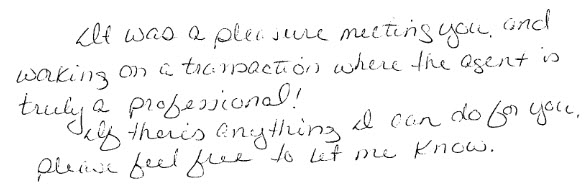 It was a pleasure meeting you, and
working on a transaction where the agent is
truly a professional!
If there's anything I can do for you,
please feel free to let me know.